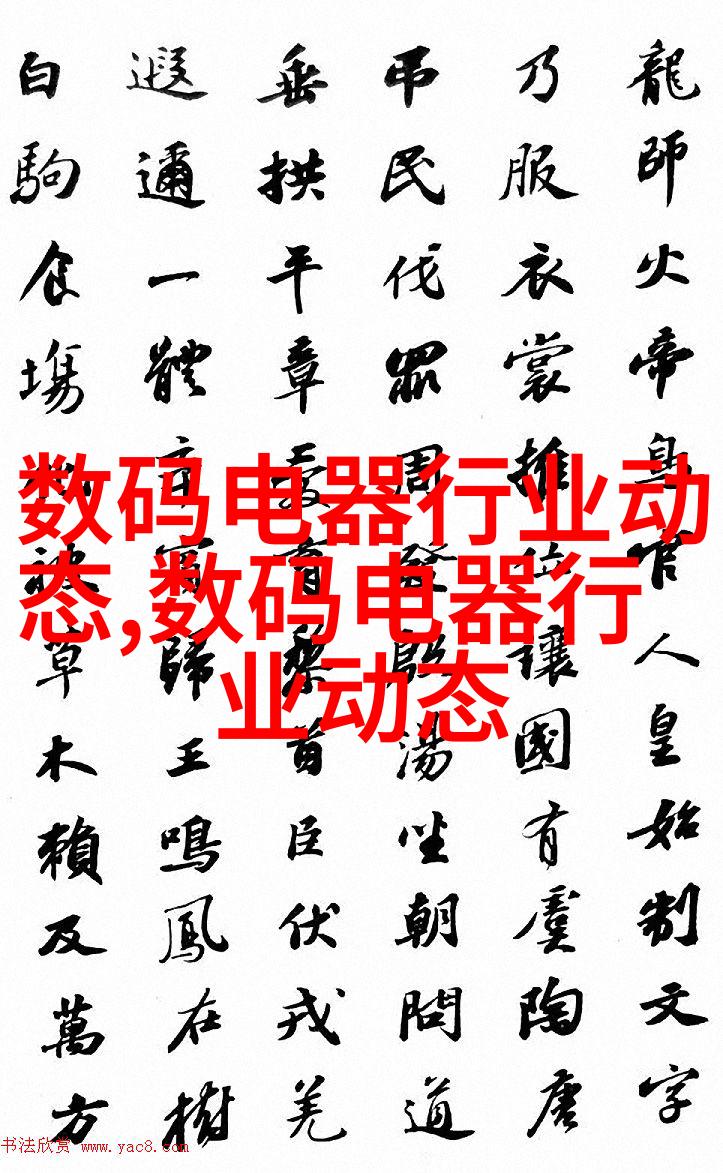 龍師火帝鳥官人皇始制文字
乃服衣裳推位讓國有虞陶唐
吊民伐罪周發殷湯坐朝問道
垂拱平章愛育黎首臣伏戎羌
遐邇一體率賓歸王鳴鳳在樹
白駒食場化被草木賴及萬方
数码电器行业动
态,数码电器行
业动态
书法欣赏 www.yac8.com